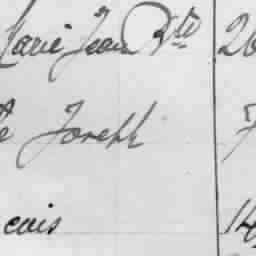 Marie Jean Bte 26
te Joseph 7
cois 14